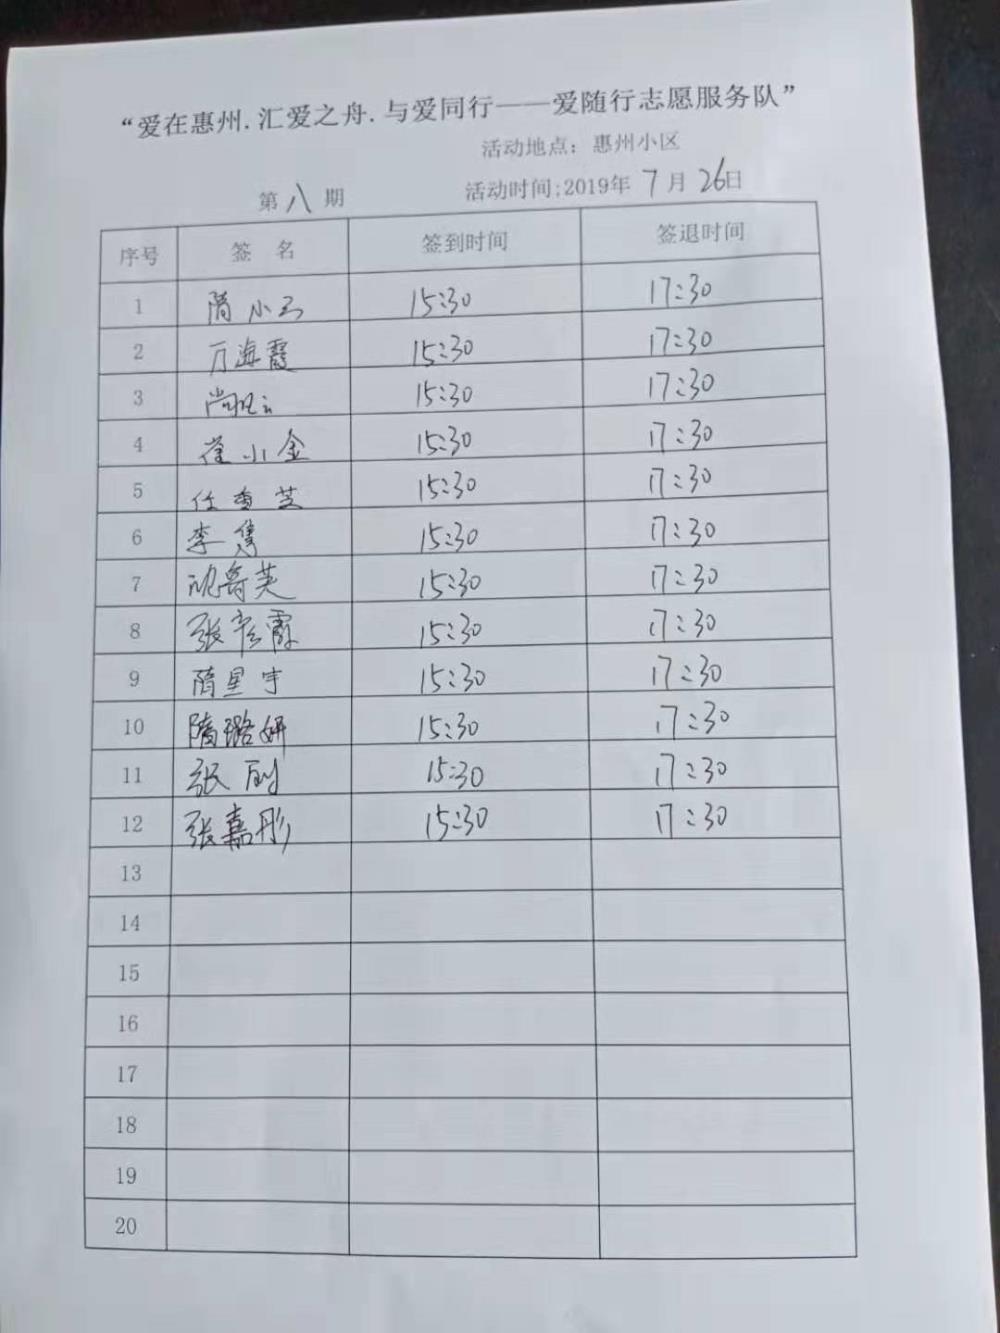 “爱在惠州.汇爱之舟.与爱同行——爱随行志愿服务队”
活动地点：惠州小区
第八期 活动时间:2019年7月26日
序号 签名 签到时间 签退时间
1 隋小云 15:30 17:30
2 万海霞 15:30 17:30
3 尚 15:30 17:30
4 崔小金 15:30 17:30
5 任香芝 15:30 17:30
6 李隽 15:30 17:30
7 15:30 17:30
8 张彦霞 15:30 17:30
9 隋星宇 15:30 17:30
10 隋璐妍 15:30 17:30
11 张 15:30 17:30
12 张嘉彤 15:30 17:30
13
14
15
16
17
18
19
20